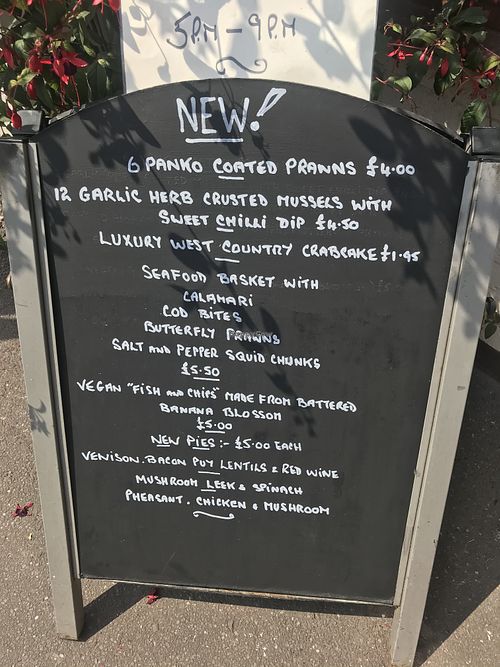 5PM - 9PM
NEW!
6 PANKO COATED PRAWNS £4.00
12 GARLIC HERB CRUSTED MUSSELS WITH
SWEET CHILLI DIP £4.50
LUXURY WEST COUNTRY CRABCAKE £1.95
SEAFOOD BASKET WITH
CALAMARI
COD BITES
BUTTERFLY PRAWNS
SALT AND PEPPER SQUID CHUNKS
£5.50
VEGAN "FISH AND CHIPS" MADE FROM BATTERED
BANANA BLOSSOM
£5.00
NEW PIES :- £5.00 EACH
VENISON. BACON PUY LENTILS & RED WINE
MUSHROOM LEEK & SPINACH
PHEASANT. CHICKEN & MUSHROOM